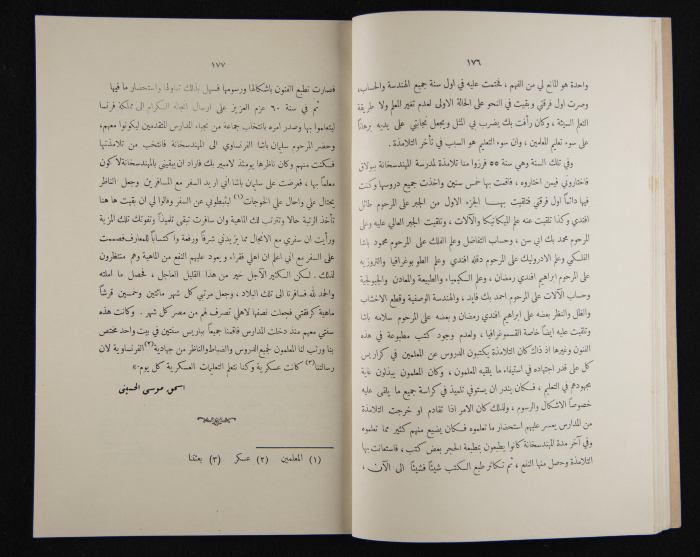 ١٧٦
واحدة هو المانع لي من الفهم ، فختمت عليه في اول سنة جميع الهندسة والحساب،
وصرت اول فرقتي وبقيت في النحو على الحالة الاولى لعدم تغير المعلم ولا طريقة
التعلم السيئة ، وكان رأفت بك يضرب بي المثل ويجعل نجابتي على يديه برهانًا
على سوء تعليم المعلمين ، وان سوء التعليم هو السبب في تأخر التلامذة .
وفي تلك السنة وهي سنة ٥٥ فرزوا منا تلامذة لمدرسة المهندسخانة ببولاق
فاختاروني فيمن اختاروه ، فاقمت بها خمس سنين واخذت جميع دروسها وكنت
فيها دائمًا اول فرقتي فتلقيت بهـــا الجزء الاول من الجبر على المرحوم طائل
افندي وكذا تلقيت عنه علم الميكانيكا والآلات ، وتلقيت الجبر العالي عليه وعلى
المرحوم محمد بك ابي سن ، وحساب التفاضل وعلم الفلك على المرحوم محمود باشا
الفلكي وعلم الادروليك على المرحوم دقله افندي وعلم الطوبوغرافيا والتروزيه
على المرحوم ابراهيم افندي رمضان ، وعلم الكيمياء والطبيعة والمعادن والجيولوجية
وحساب الآلات على المرحوم احمد بك فايد ، والهندسة الوصفية وقطع الاخشاب
والظل والنظر بعضه على ابراهيم افندي رمضان وبعضه على المرحوم سلامه باشا
وتلقيت عليه ايضًا خاصة القسموغرافيا ، ولعدم وجود كتب مطبوعة في هذه
الفنون وغيرها اذ ذاك كان التلامذة يكتبون الدروس عن المعلمين في كراريس
كل على قدر اجتهاده في استيفاء ما يلقيه المعلمون ، وكان المعلمون يبذلون غاية
مجهودهم في التعليم ، فكان يندر ان يستوفي تلميذ في كراسة جميع ما يلقى عليه
خصوصًا الاشكال والرسوم ، ولذلك كان الامر اذا تقادم او خرجت التلامذة
من المدارس يعسر عليهم استحضار ما تعلموه فكان يضيع منهم كثير مما تعلموه
وفي آخر مدة المهندسخانة كانوا يطبعون بمطبعة الحجر بعض كتب ، فاستعانت بها
التلامذة وحصل منها النفع ، ثم تكاثر طبع الكتب شيئًا فشيئًا الى الآن ،
١٧٧
فصارت تطبع الفنون باشكالها ورسومها فسهل بذلك تناولها واستحضار ما فيها
ثم في سنة ٦٠ عزم العزيز على ارسال انجاله الكرام الى مملكة فرنسا
ليتعلموا بها وصدر امره بانتخاب جماعة من نجباء المدارس المتقدمين ليكونوا معهم،
وحضر المرحوم سليمان باشا الفرنساوي الى المهندسخانة فانتخب من تلامذتها
فكنت منهم وكان ناظرها يومئذ لامبير بك فاراد ان يبقيني بالمهندسخانة لاكون
معلمًا بها ، فعرضت على سليمان باشا اني اريد السفر مع المسافرين وجعل الناظر
يحتال علي واحال علي الخوجات(١) ليثبطوني عن السفر وقالوا لي ان بقيت ها هنا
تأخذ الرتبة حالا وتترتب لك الماهية وان سافرت تبقى تلميذًا وتفوتك تلك المزية
ورأيت ان سفري مع الانجال مما يزيدني شرفًا ورفعة واكتسابًا للمعارف فصممت
على السفر مع اني اعلم ان اهلي فقراء ويعود عليهم النفع من الماهية وهم منتظرون
لذلك . لكن الكثير الآجل خير من هذا القليل العاجل ، فحصل ما املته
والحمد لله فسافرنا الى تلك البلاد ، وجعل مرتبي كل شهر مائتين وخمسين قرشًا
ماهية كرفقتي فجعلت نصفها لاهلي تصرف لهم من مصر كل شهر . وكانت هذه
سنتي معهم منذ دخلت المدارس فاقمنا جميعًا بباريس سنتين في بيت واحد مختص
بنا ورتب لنا المعلمون لجميع الدروس والضباط والناظر من جهادية(٢) الفرنساوية لان
رسالتنا(٣) كانت عسكرية وكنا نتعلم التعليمات العسكرية كل يوم.»
اسحق موسى الحسيني
(١) المعلمين (٢) عسكر (٣) بعثتنا